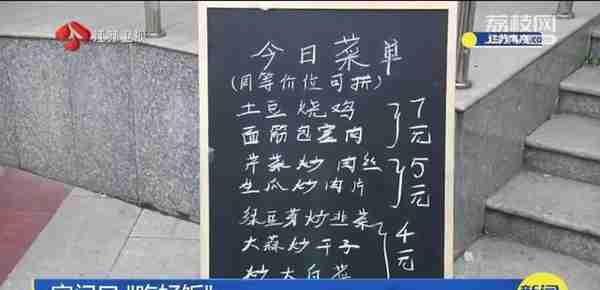 江苏卫视
荔枝网
今日菜单
(同等价位可拼)
土豆烧鸡
面筋包宝肉
7元
芹菜炒肉丝
生瓜炒肉片
5元
绿豆芽炒韭菜
大蒜炒干子
炒大白菜
4元
新闻